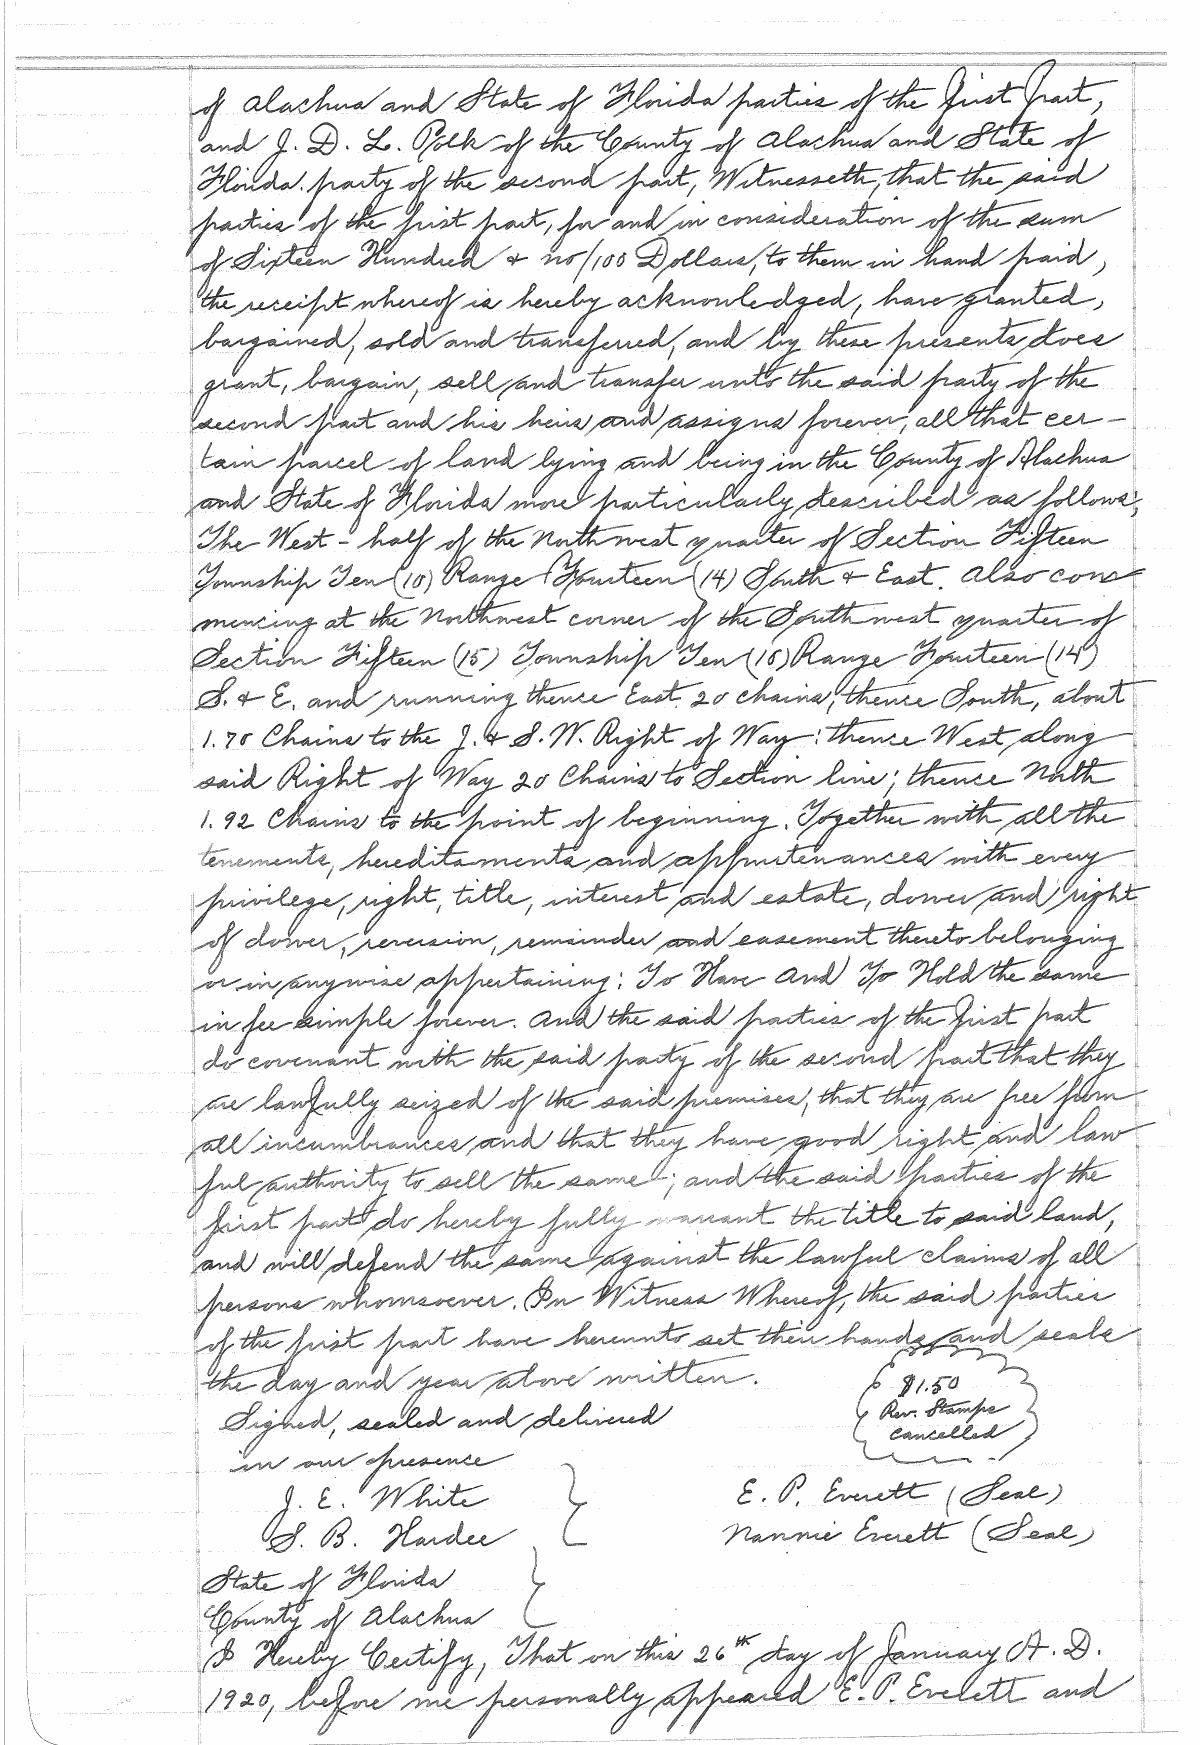 of Alachua and State of Florida parties of the first part,
and J. D. L. Polk of the County of Alachua and State of
Florida. party of the second part, Witnesseth, that the said
parties of the first part, for and in consideration of the sum
of Sixteen Hundred & no/100 Dollars, to them in hand paid,
the receipt whereof is hereby acknowledged, have granted,
bargained, sold and transferred, and by these presents does
grant, bargain, sell and transfer unto the said party of the
second part and his heirs and assigns forever, all that cer-
tain parcel of land lying and being in the County of Alachua
and State of Florida more particularly described as follows;
The West-half of the Northwest quarter of Section Fifteen
Township Ten (10) Range Fourteen (14) South & East. Also com
mencing at the Northwest corner of the Southwest quarter of
Section Fifteen (15) Township Ten (10) Range Fourteen (14)
S. & E. and running thence East 20 chains; thence South, about
1.70 Chains to the J. & S. W. Right of Way; thence West along
said Right of Way 20 Chains to Section line; thence North
1.92 Chains to the point of beginning. Together with all the
tenements, hereditaments and appurtenances with every
privilege, right, title, interest and estate, dower and right
of dower, reversion, remainder and easement thereto belonging
or in anywise appertaining: To Have And To Hold the same
in fee simple forever. And the said parties of the first part
do covenant with the said party of the second part that they
are lawfully seized of the said premises, that they are free from
all incumbrances and that they have good right and law
ful authority to sell the same; and the said parties of the
first part do hereby fully warrant the title to said land,
and will defend the same against the lawful claims of all
persons whomsoever. In Witness Whereof, the said parties
of the first part have hereunto set their hands and seals
the day and year above written.
$1.50
Rev. Stamps
cancelled
Signed, sealed and delivered
in our presence
J. E. White
S. B. Hardee
E. P. Everett (Seal)
Nannie Everett (Seal)
State of Florida
County of Alachua
I Hereby Certify, That on this 26th day of January A. D.
1920, before me personally appeared E. P. Everett and